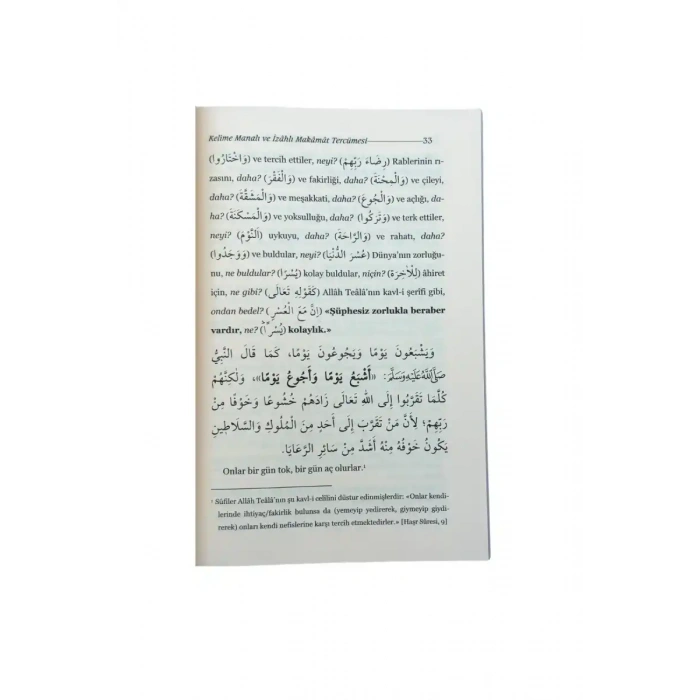 Kelime Manalı ve İzâhlı Makâmât Tercümesi 33
(وَاخْتَارُوا) ve tercih ettiler, neyi? (رِضَاءَ رَبِّهِمْ) Rablerinin rı-
zasını, daha? (وَالْفَقْرَ) ve fakirliği, daha? (وَالْمِحْنَةَ) ve çileyi,
daha? (وَالْمَشَقَّةَ) ve meşakkati, daha? (وَالْجُوعَ) ve açlığı, da-
ha? (وَالْمَسْكَنَةَ) ve yoksulluğu, daha? (وَتَرَكُوا) ve terk ettiler,
neyi? (اَلنَّوْمَ) uykuyu, daha? (وَالرَّاحَةَ) ve rahatı, daha?
(وَوَجَدُوا) ve buldular, neyi? (عُسْرَ الدُّنْيَا) Dünya'nın zorluğu-
nu, ne buldular? (يُسْرًا) kolay buldular, niçin? (لِلْاٰخِرَةِ) âhiret
için, ne gibi? (كَقَوْلِهِ تَعَالَى) Allâh Teâlâ'nın kavl-i şerîfi gibi,
ondan bedel? (اِنَّ مَعَ الْعُسْرِ) «Şüphesiz zorlukla beraber
vardır, ne? (يُسْرًا) kolaylık.»
وَيَشْبَعُونَ يَوْمًا وَيَجُوعُونَ يَوْمًا، كَمَا قَالَ النَّبِيُّ
صَلَّى اللهُ عَلَيْهِ وَسَلَّمَ: «أَشْبَعُ يَوْمًا وَأَجُوعُ يَوْمًا»، وَلَكِنَّهُمْ
كُلَّمَا تَقَرَّبُوا إِلَى اللهِ تَعَالَى زَادَهُمْ خُشُوعًا وَخَوْفًا مِنْ
رَبِّهِمْ؛ لِأَنَّ مَنْ تَقَرَّبَ إِلَى أَحَدٍ مِنَ الْمُلُوكِ وَالسَّلَاطِينِ
يَكُونُ خَوْفُهُ مِنْهُ أَشَدَّ مِنْ سَائِرِ الرَّعَايَا.
Onlar bir gün tok, bir gün aç olurlar.¹
¹ Sûfîler Allâh Teâlâ'nın şu kavl-i celîlini düstur edinmişlerdir: «Onlar kendi-
lerinde ihtiyaç/fakirlik bulunsa da (yemeyip yedirerek, giymeyip giydi-
rerek) onları kendi nefislerine karşı tercih etmektedirler.» [Haşr Sûresi, 9]